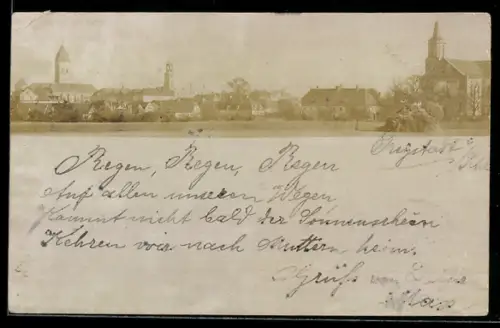 Regen, Regen, Regen
Auf allen unseren Wegen
Kommt nicht bald der Sonnenschein
Kehren wir nach Muttern heim.
Gruß von
Max